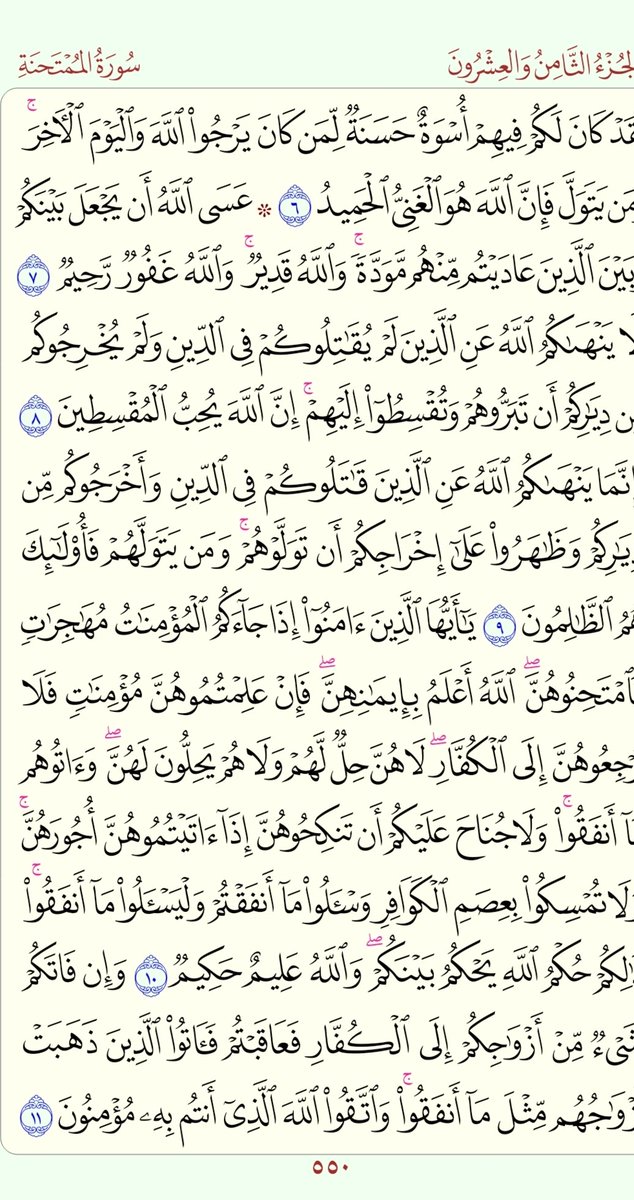 لجُزْءُ الثَّامِنُ وَالعِشْرُونَ سُورَةُ المُمْتَحنَةِ
قَدْ كَانَ لَكُمْ فِيهِمْ أُسْوَةٌ حَسَنَةٌ لِّمَن كَانَ يَرْجُوا۟ ٱللَّهَ وَٱلْيَوْمَ ٱلْـَٔاخِرَ ۚ
مَن يَتَوَلَّ فَإِنَّ ٱللَّهَ هُوَ ٱلْغَنِىُّ ٱلْحَمِيدُ ٦ ۞ عَسَى ٱللَّهُ أَن يَجْعَلَ بَيْنَكُمْ
بَيْنَ ٱلَّذِينَ عَادَيْتُم مِّنْهُم مَّوَدَّةً ۚ وَٱللَّهُ قَدِيرٌ ۚ وَٱللَّهُ غَفُورٌ رَّحِيمٌ ٧
لَا يَنْهَىٰكُمُ ٱللَّهُ عَنِ ٱلَّذِينَ لَمْ يُقَـٰتِلُوكُمْ فِى ٱلدِّينِ وَلَمْ يُخْرِجُوكُم
ن دِيَـٰرِكُمْ أَن تَبَرُّوهُمْ وَتُقْسِطُوٓا۟ إِلَيْهِمْ ۚ إِنَّ ٱللَّهَ يُحِبُّ ٱلْمُقْسِطِينَ ٨
إِنَّمَا يَنْهَىٰكُمُ ٱللَّهُ عَنِ ٱلَّذِينَ قَـٰتَلُوكُمْ فِى ٱلدِّينِ وَأَخْرَجُوكُم مِّن
دِيَـٰرِكُمْ وَظَـٰهَرُوا۟ عَلَىٰٓ إِخْرَاجِكُمْ أَن تَوَلَّوْهُمْ ۚ وَمَن يَتَوَلَّهُمْ فَأُو۟لَـٰٓئِكَ
هُمُ ٱلظَّـٰلِمُونَ ٩ يَـٰٓأَيُّهَا ٱلَّذِينَ ءَامَنُوٓا۟ إِذَا جَآءَكُمُ ٱلْمُؤْمِنَـٰتُ مُهَـٰجِرَٰتٍ
ٱمْتَحِنُوهُنَّ ۖ ٱللَّهُ أَعْلَمُ بِإِيمَـٰنِهِنَّ ۖ فَإِنْ عَلِمْتُمُوهُنَّ مُؤْمِنَـٰتٍ فَلَا
رْجِعُوهُنَّ إِلَى ٱلْكُفَّارِ ۖ لَا هُنَّ حِلٌّ لَّهُمْ وَلَا هُمْ يَحِلُّونَ لَهُنَّ ۖ وَءَاتُوهُم
مَّآ أَنفَقُوا۟ ۚ وَلَا جُنَاحَ عَلَيْكُمْ أَن تَنكِحُوهُنَّ إِذَآ ءَاتَيْتُمُوهُنَّ أُجُورَهُنَّ ۚ
وَلَا تُمْسِكُوا۟ بِعِصَمِ ٱلْكَوَافِرِ وَسْـَٔلُوا۟ مَآ أَنفَقْتُمْ وَلْيَسْـَٔلُوا۟ مَآ أَنفَقُوا۟ ۚ
ٰلِكُمْ حُكْمُ ٱللَّهِ يَحْكُمُ بَيْنَكُمْ ۖ وَٱللَّهُ عَلِيمٌ حَكِيمٌ ١٠ وَإِن فَاتَكُمْ
شَىْءٌ مِّنْ أَزْوَٰجِكُمْ إِلَى ٱلْكُفَّارِ فَعَاقَبْتُمْ فَـَٔاتُوا۟ ٱلَّذِينَ ذَهَبَتْ
زْوَٰجُهُم مِّثْلَ مَآ أَنفَقُوا۟ ۚ وَٱتَّقُوا۟ ٱللَّهَ ٱلَّذِىٓ أَنتُم بِهِۦ مُؤْمِنُونَ ١١
٥٥٠